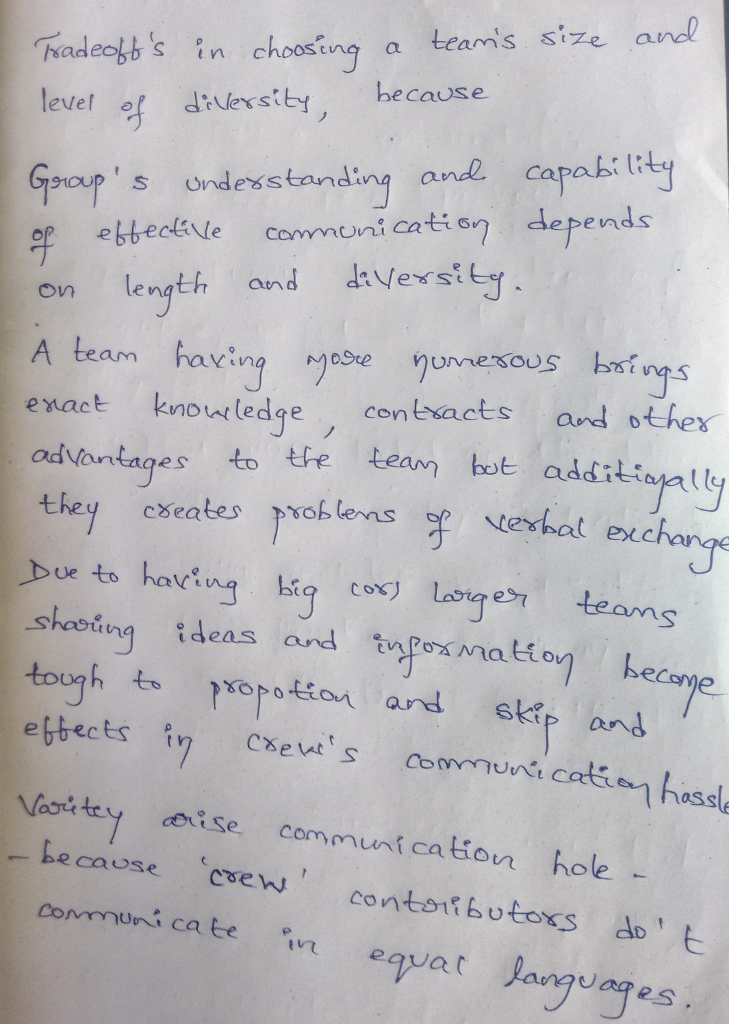 Tradeoff's in choosing a team's size and
level of diversity, because
Group's understanding and capability
of effective communication depends
on length and diversity.
A team having more numerous brings
exact knowledge, contracts and other
advantages to the team but additionally
they creates problems of verbal exchange
Due to having big (or) larger teams
sharing ideas and information become
tough to propotion and skip and
effects in crew's communication hassle
Varitey arise communication hole -
- because 'crew' contributors do't
communicate in equal languages.